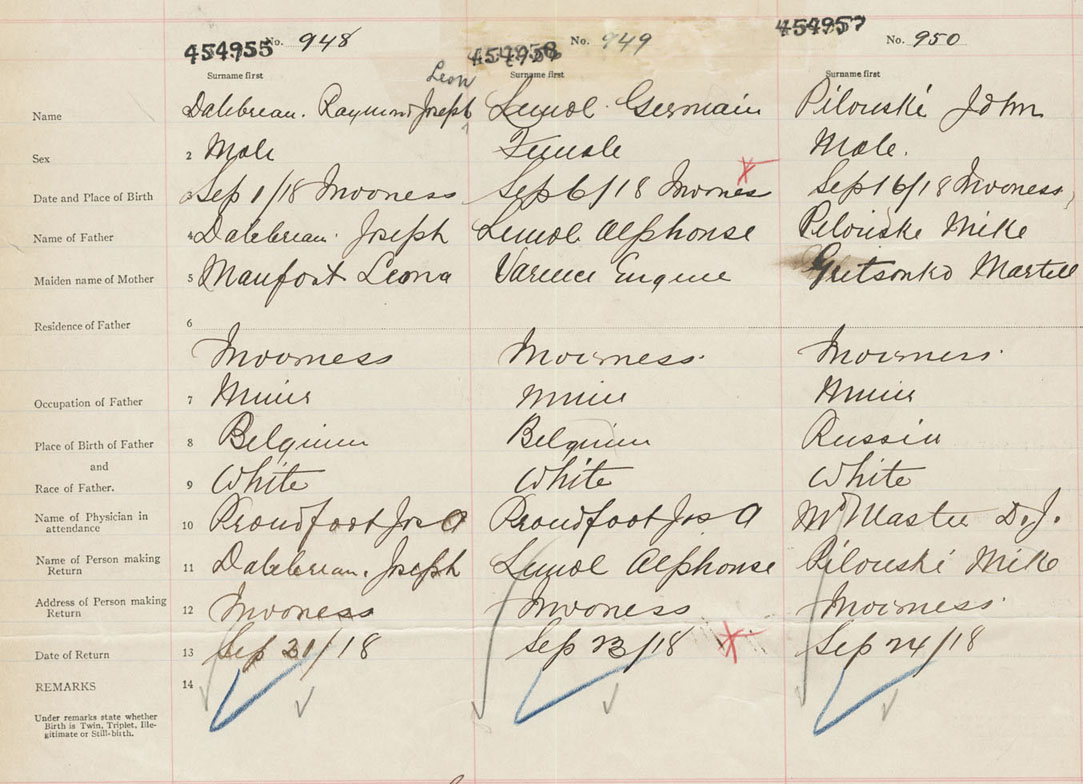 454955 No. 948 No. 949 454957 No. 950
Surname first Surname first Surname first
Leon
Name Dalebrean. Raymond Joseph Lemol Germain Pilouski John
Sex 2 Male Female Male.
Date and Place of Birth 3 Sep 1/18 Inverness Sep 6/18 Inverness Sep 16/18 Inverness,
Name of Father 4 Dalebrean. Joseph Lemol Alphonse Pilouske Mike
Maiden name of Mother 5 Maufort Leona Varence Eugene Gritsonko Martell
Residence of Father 6
Inverness Inverness. Inverness.
Occupation of Father 7 Miner Miner Miner
Place of Birth of Father 8 Belgium Belgium Russia
and
Race of Father. 9 White White White
Name of Physician in
attendance 10 Proudfoot Jos A Proudfoot Jos A McMaster D.J.
Name of Person making
Return 11 Dalebrean. Joseph Lemol Alphonse Pilouski Mike
Address of Person making
Return 12 Inverness Inverness Inverness.
Date of Return 13 Sep /18 Sep 23/18 Sep 24/18
REMARKS 14
Under remarks state whether
Birth is Twin, Triplet, Ille-
gitimate or Still-birth.